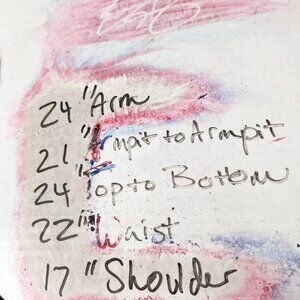 24" Arm
21" Armpit to Armpit
24" Top to Bottom
22" Waist
17" Shoulder